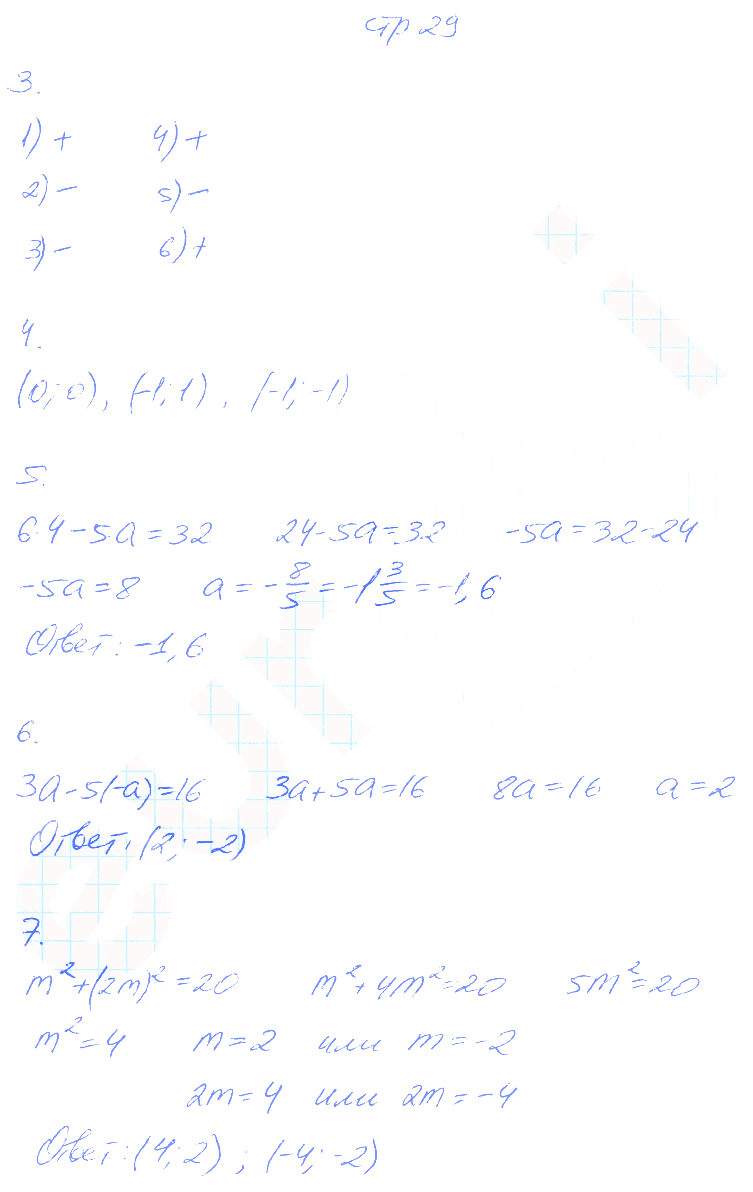 стр 29
3.
1) + 4) +
2) − 5) −
3) − 6) +
4.
(0; 0), (-1; 1), (-1; -1)
5.
6·4 − 5·a = 32 24 − 5a = 32 -5a = 32 − 24
-5a = 8 a = -8/5 = -1 3/5 = -1,6
Ответ: -1,6
6.
3a − 5(-a) = 16 3a + 5a = 16 8a = 16 a = 2
Ответ: (2; -2)
7.
m² + (2m)² = 20 m² + 4m² = 20 5m² = 20
m² = 4 m = 2 или m = -2
2m = 4 или 2m = -4
Ответ: (4; 2) ; (-4; -2)